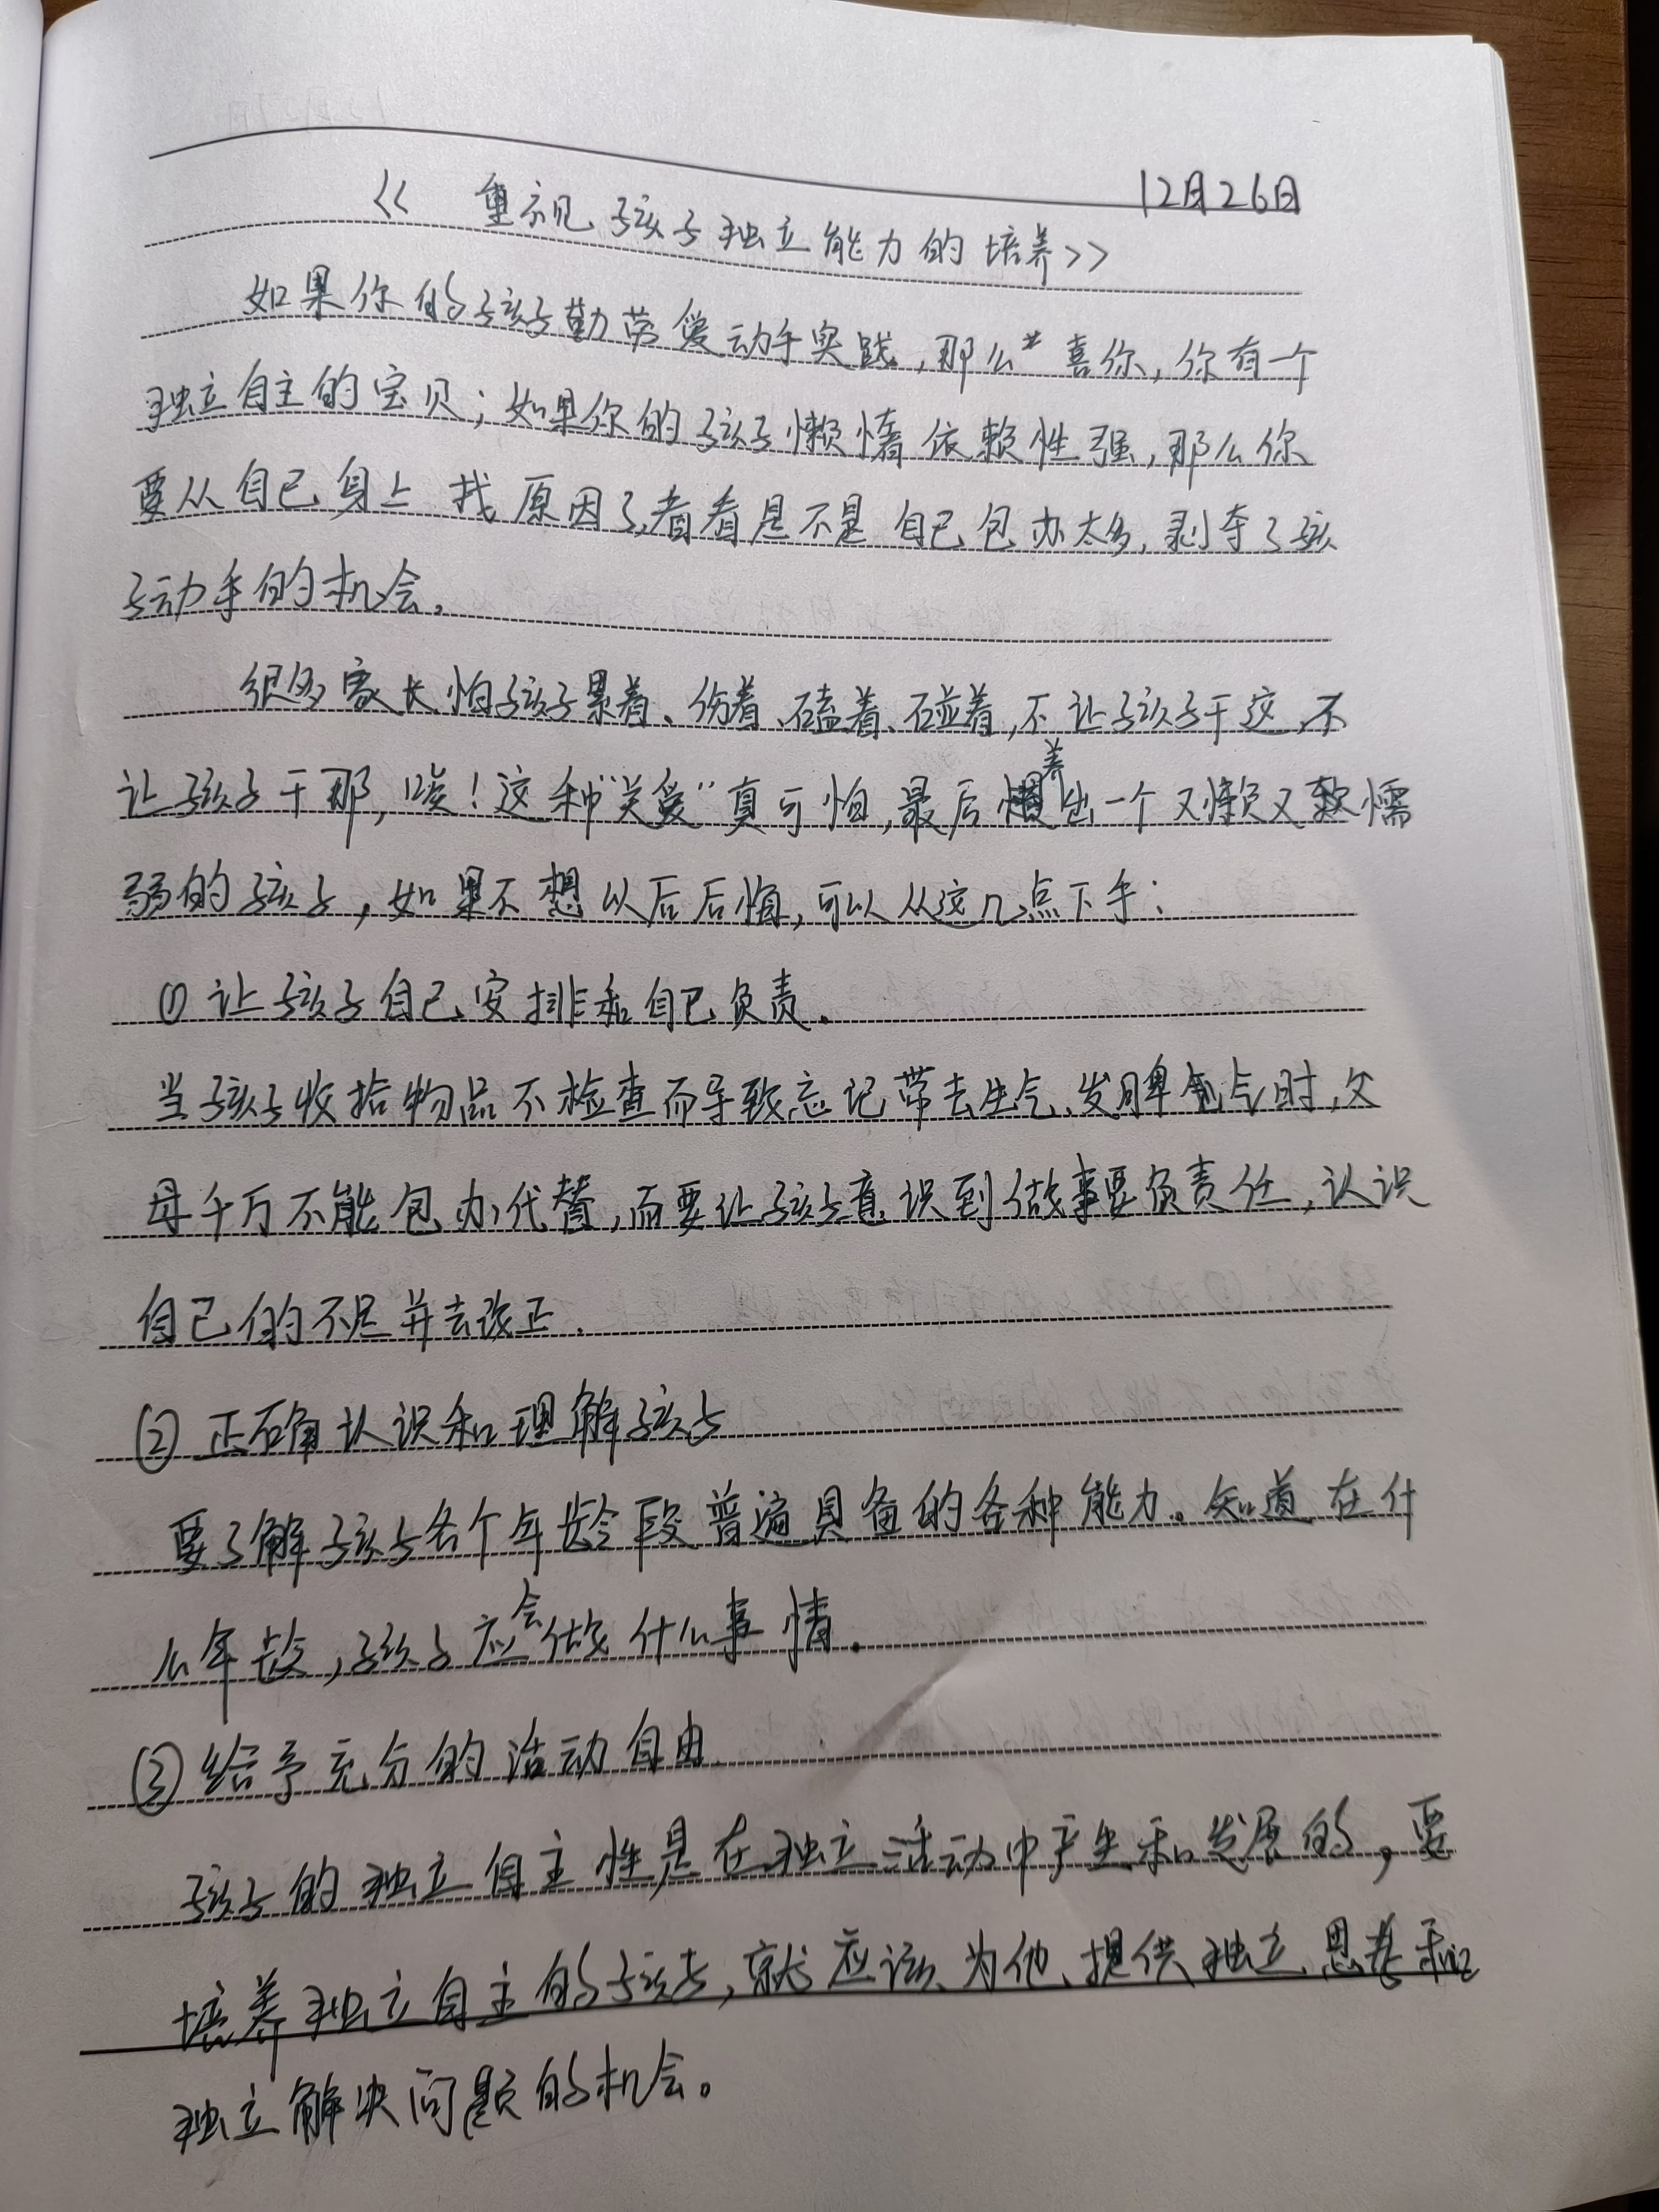 12月26日
《 重视孩子独立能力的培养》
如果你的孩子勤劳爱动手实践,那么 喜你,你有一个
独立自主的宝贝;如果你的孩子懒惰依赖性强,那么你
要从自己身上找原因了,看看是不是自己包办太多,剥夺了孩
子动手的机会。
很多家长怕孩子累着、伤着、磕着、碰着,不让孩子干这,不
让孩子干那,唉!这种“关爱”真可怕,最后养出一个又懒又软懦
弱的孩子,如果不想以后后悔,可以从这几点下手:
(1) 让孩子自己安排和自己负责。
当孩子收拾物品不检查而导致忘记带去生气、发脾气时,父
母千万不能包办代替,而要让孩子意识到做事要负责任,认识
自己的不足并去改正.
(2) 正确认识和理解孩子
要了解孩子各个年龄段普遍具备的各种能力。知道在什
么年龄,孩子应会做什么事情.
(3) 给予充分的活动自由
孩子的独立自主性是在独立活动中产生和发展的,要
培养独立自主的孩子,就应该为他提供独立思考和
独立解决问题的机会。